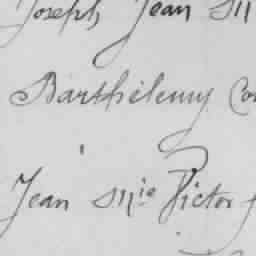 Joseph Jean M
Barthélemy Co
Jean Mie Victor